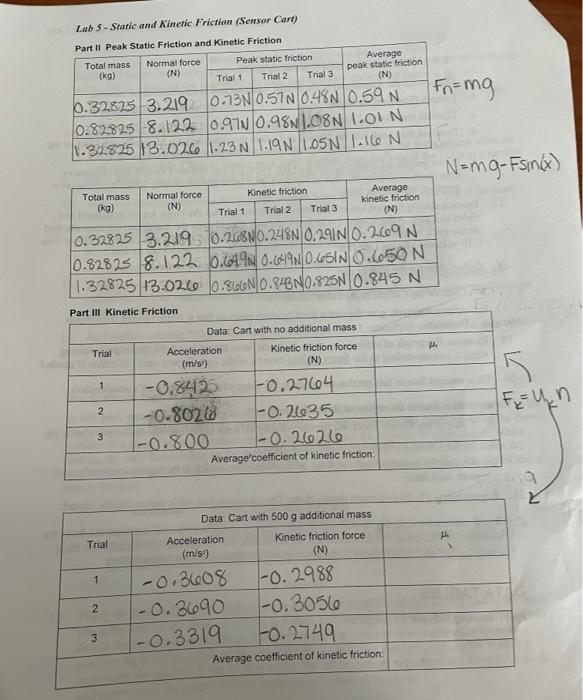 Lab 5 - Static and Kinetic Friction (Sensor Cart)
Part II Peak Static Friction and Kinetic Friction
Total mass (kg) Normal force (N) Peak static friction Average peak static friction (N)
Trial 1 Trial 2 Trial 3
0.32825 3.219 0.73N 0.57N 0.48N 0.59 N
0.82825 8.122 0.97N 0.98N 1.08N 1.01 N
1.32825 13.026 1.23N 1.19N 1.05N 1.16 N
Fn=mg
N=mg-Fsin(x)
Total mass (kg) Normal force (N) Kinetic friction Average kinetic friction (N)
Trial 1 Trial 2 Trial 3
0.32825 3.219 0.268N 0.248N 0.291N 0.269 N
0.82825 8.122 0.649N 0.649N 0.651N 0.650 N
1.32825 13.026 0.866N 0.843N 0.825N 0.845 N
Part III Kinetic Friction
Data: Cart with no additional mass
Trial Acceleration (m/s²) Kinetic friction force (N) μₖ
1 -0.8425 -0.2764
2 -0.8026 -0.2635
3 -0.800 -0.2626
Average coefficient of kinetic friction:
Fₖ=μₖn
Data: Cart with 500 g additional mass
Trial Acceleration (m/s²) Kinetic friction force (N) μₖ
1 -0.3608 -0.2988
2 -0.3690 -0.3056
3 -0.3319 -0.2749
Average coefficient of kinetic friction: